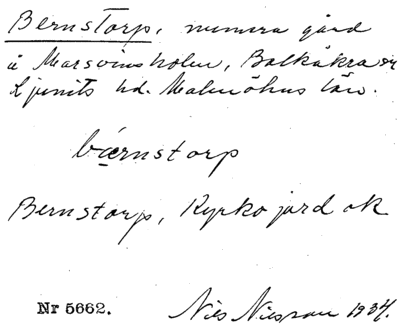 Bernstorp, numera gård
å Marsvinsholm, Balkåkra sn
Ljunits hd. Malmöhus län.
bærnstorp
Bernstorp, Kyrkojord ok
Nr 5662.
Nils 1934.